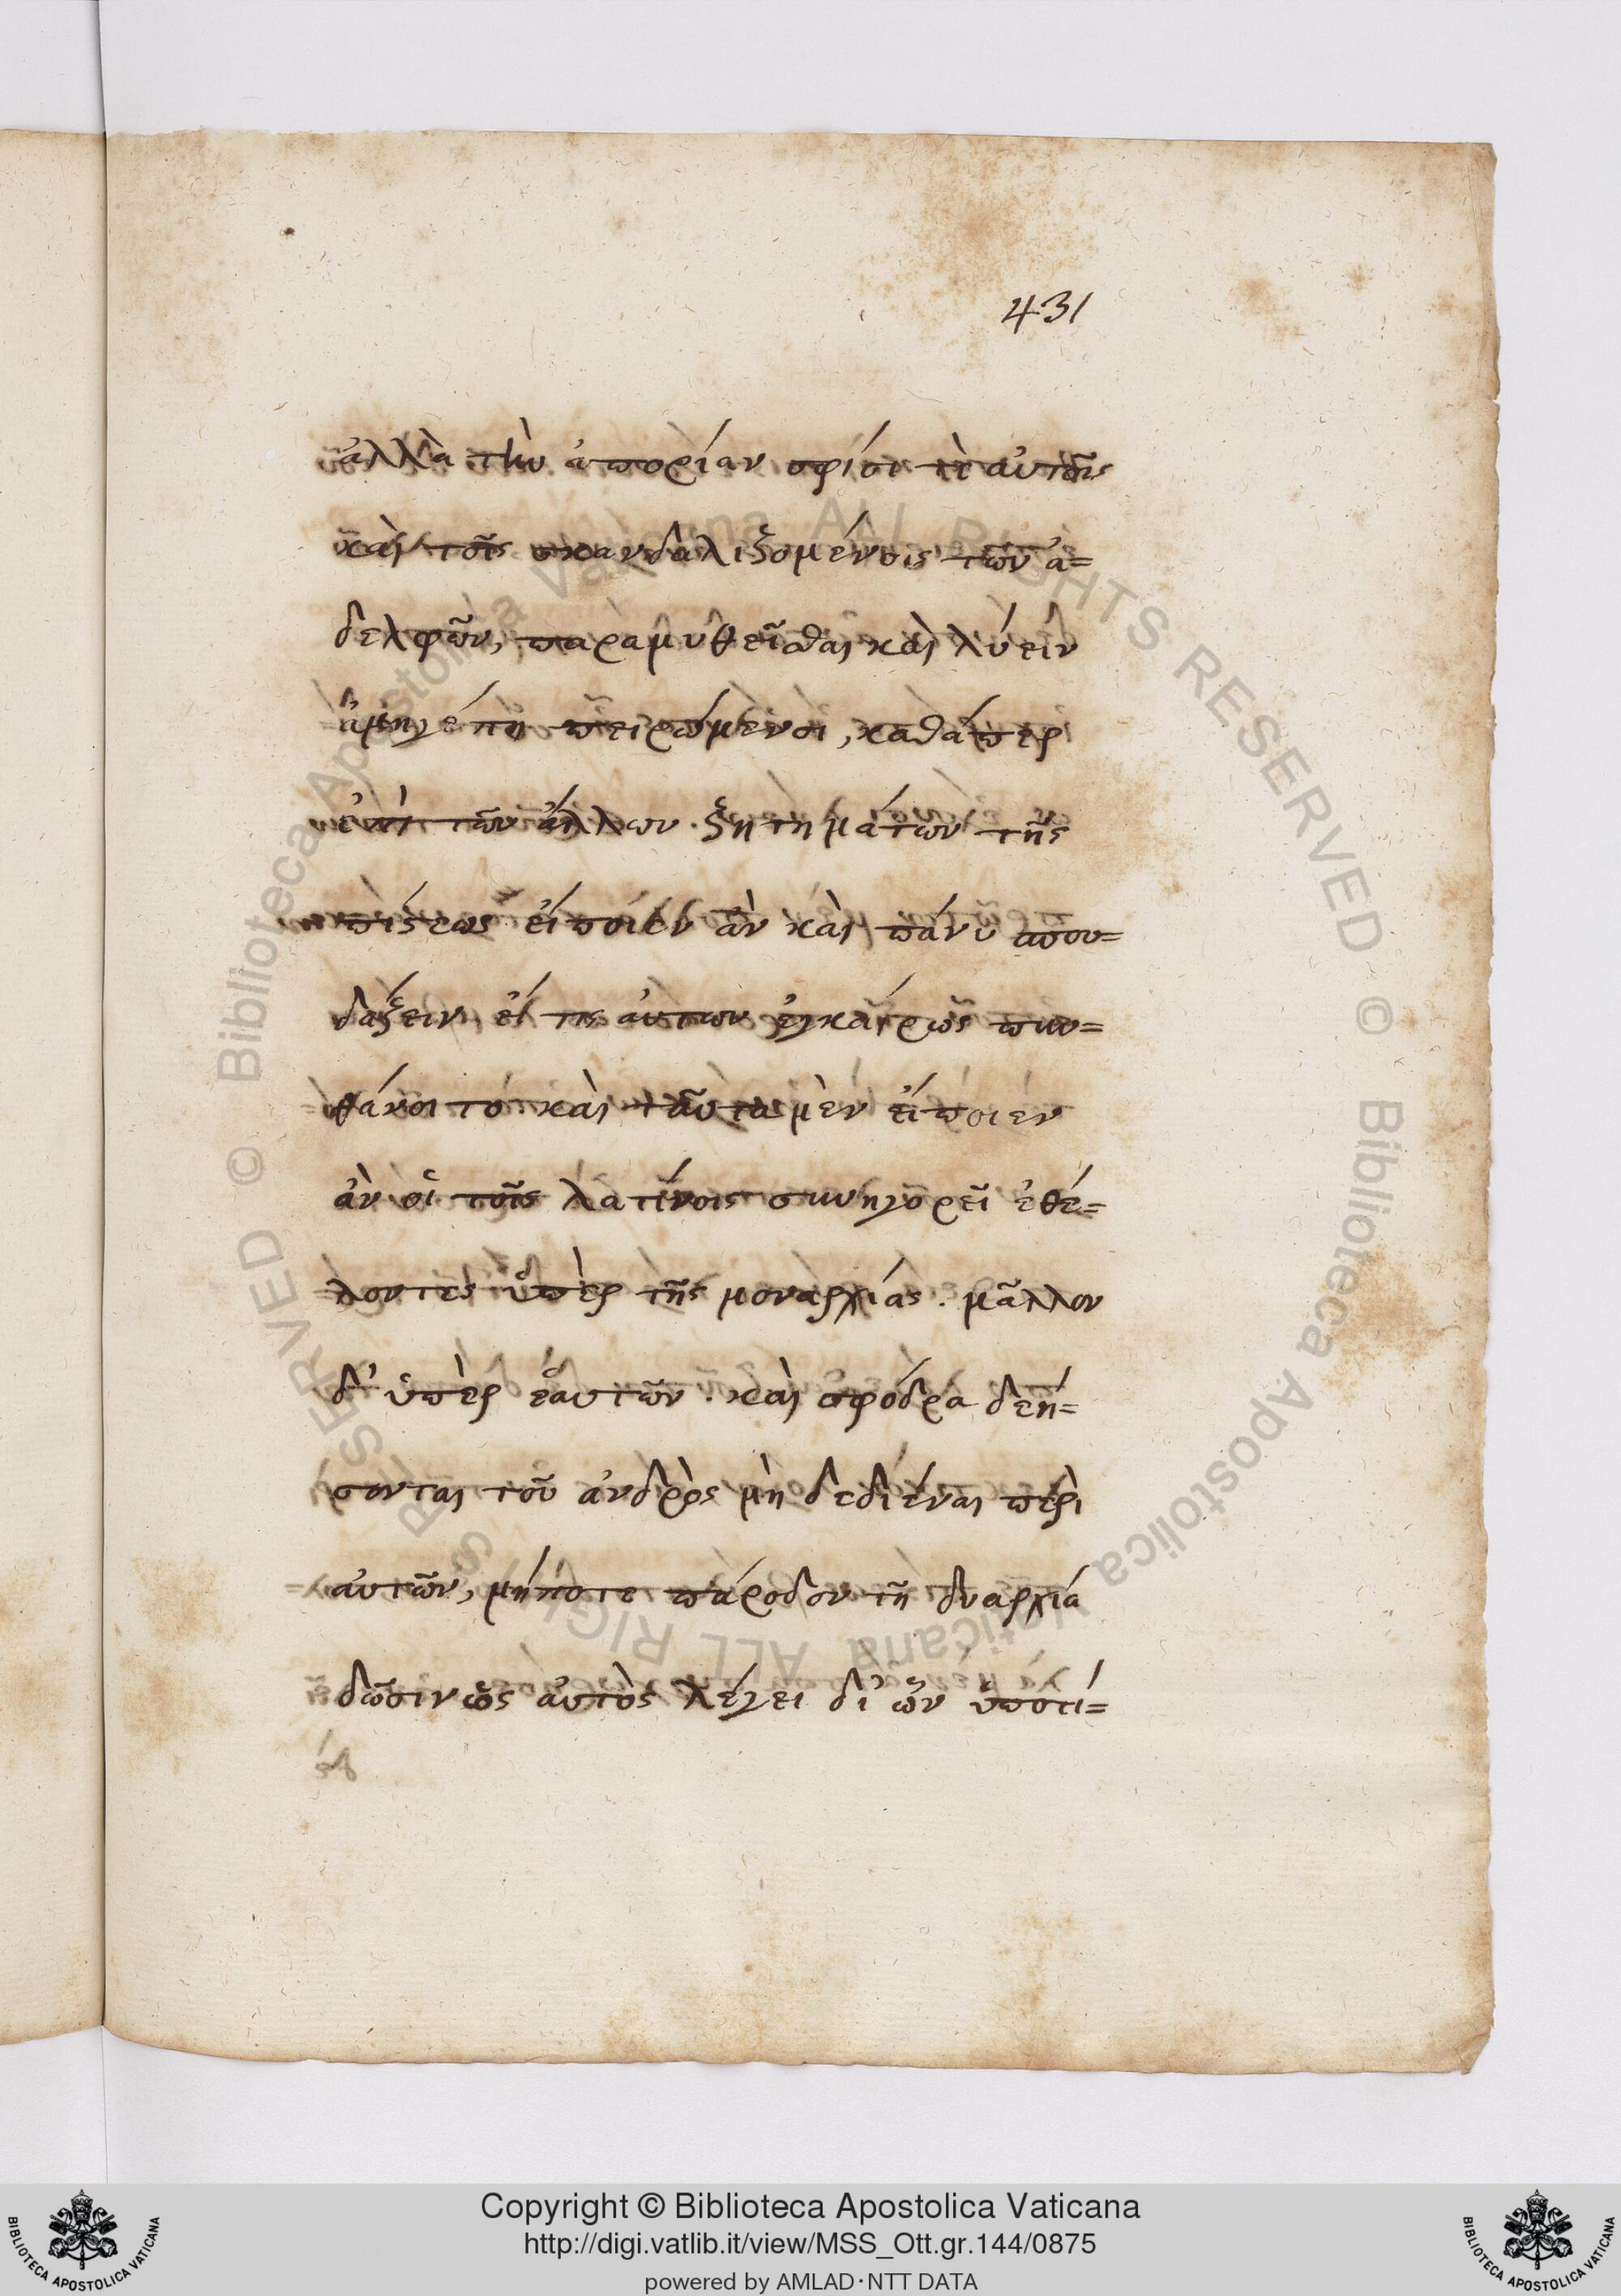 431
ἀλλὰ τὴν ἀπορίαν σφίσι τὲ αὐτοῖς
καὶ τοῖς σκανδαλιζομένοις τῶν ἀ=
δελφῶν, παραμυθεῖσθαι καὶ λύειν
ἁμηγέπη πειρώμενοι, καθάπερ
ἐπὶ τῶν ἄλλων ζητημάτων τῆς
πίστεως εἴποιεν ἂν καὶ πάνυ σπου=
δάζειν, εἴ τις αὐτων ἐγκαίρως πυν=
θάνοιτο. καὶ ταῦτα μὲν εἴποιεν
ἂν οἱ τοῖς λατίνοις συνηγορεῖ ἐθέ=
λοντες ὑπὲρ τῆς μοναρχίας. μᾶλλον
δ' ὑπὲρ ἑαυτῶν. καὶ σφόδρα δεή=
σονται τοῦ ἀνδρὸς μὴ δεδιέναι περὶ
αὐτῶν, μήποτε πάροδον τῇ δυαρχία
δῶσιν ὡς αὐτὸς λέγει δι' ὧν ὑποτί=
Copyright © Biblioteca Apostolica Vaticana
http://digi.vatlib.it/view/MSS_Ott.gr.144/0875
powered by AMLAD·NTT DATA
BIBLIOTECA APOSTOLICA VATICANA
BIBLIOTECA APOSTOLICA VATICANA
© Biblioteca Apostolica Vaticana ALL RIGHTS RESERVED
© Biblioteca Apostolica Vaticana ALL RIGHTS RESERVED